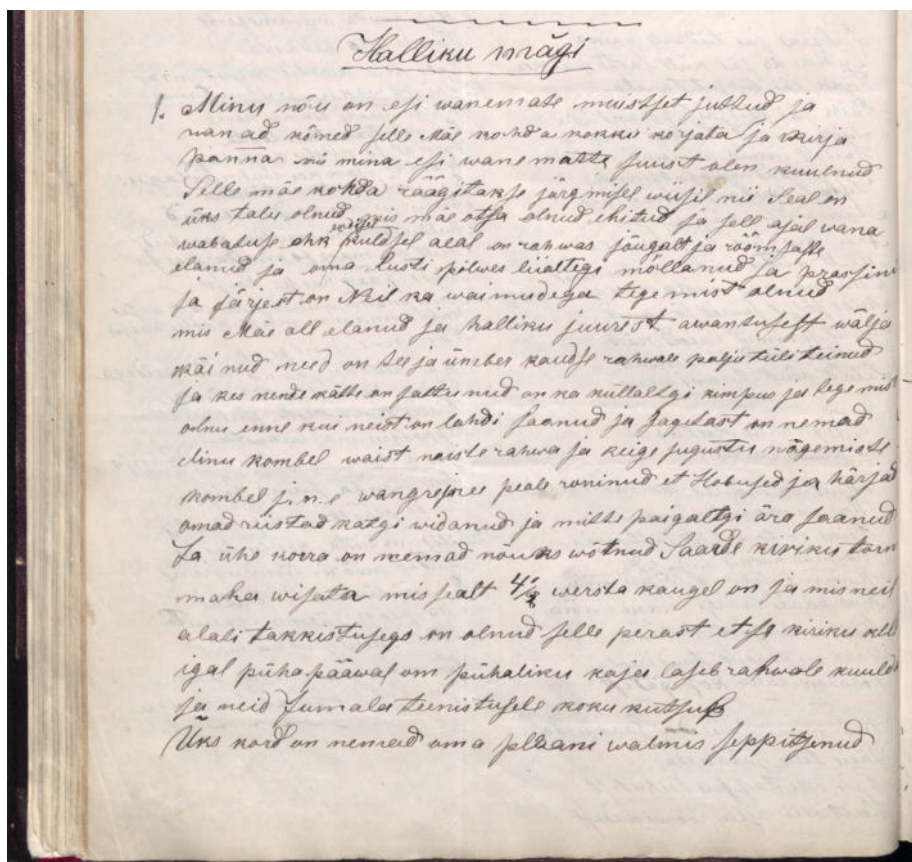 Halliku mägi
1. Minu nõu on esi wanemate muistset juttud ja
wanad kõned selle Mäe kohda kokku korjata ja kirja
panna nii mina esi wanematte suust olen kuulnud
Selle mäe kohda räägitakse järgmisel wiisil nii Seal on
üks talu olnud mis mäe otsa olnud ehitud ja sell ajal wana
wabatuse ehk endisel kuldsel aeal on rahwas jõugalt ja rõõmsaste
elanud ja oma lusti pilwes liialtegi möllanud ja prassinu
ja järjest on Neil ka waimudega tegemist olnud
mis Mäe all elanud ja halliku juurest awantusest wälja
käinud need on tee ja ümber kaudse rahwale palju tüli teinud
ja kes nende kätte on sattunud on ka küllaltgi kimpus ja tegemist
olnu enne kui neist on lahdi saanud ja sagetast on nemad
elinu kombel waist naisterahwa ja keige sugustu nägemiste
kombel j.n.e wangrejree peale roninud et Hobused ja härjad
omad riistad katgi widanud ja mitte paigaltgi ära saanud
Ja ühe korra on nemad nõuks wõtnud Saarde kiriku torn
maha wisata mis sealt 4½ wersta kaugel on ja mis neil
alati takkistusegs on olnud selle perast et se kiriku kell
igal püha pääwal om pühaliku kaja laseb rahwale kuulda
ja neid Jumala teenistusele koku kutsub
Üks kord on nemad oma plaani walmis seppitsenud